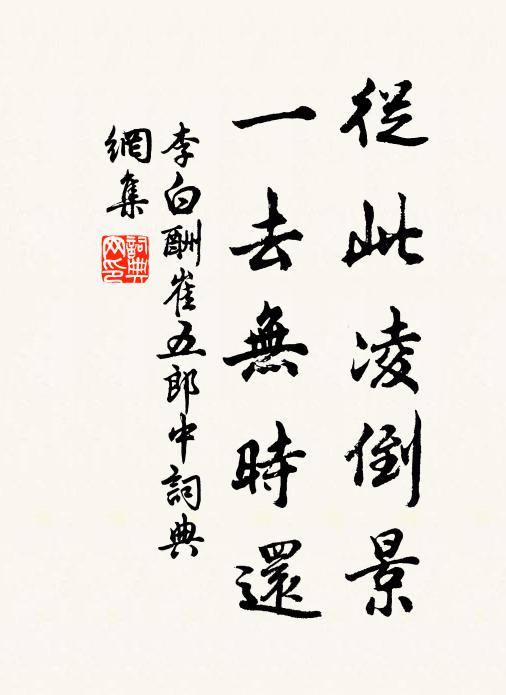 從此凌倒景
一去無時還
李白酬崔五郎中詞典
網集
詞典
网印